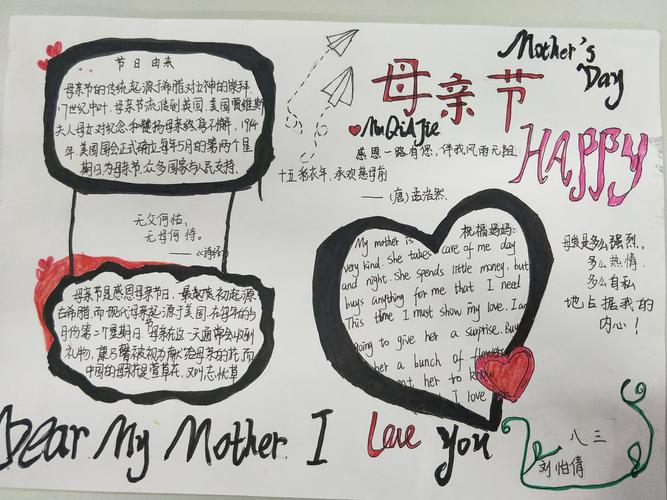 节日由来
母亲节的传统起源于希腊对女神的崇拜
17世纪中叶,母亲节流传到英国,美国
夫人母女对纪念和赞扬母亲终身不懈,1914
年,美国国会正式确立每年5月的第两个星
期日为母亲节,众多国家与人民支持.
无父何怙,
无母何恃。
——《诗经》
母亲节是感恩母亲节日.最早
古希腊.而现代母亲起源于美国.在每年的5
月份第二个星期日.母亲在这一天通常会收到
礼物.康乃馨被视为献给母亲的花,而
中国的母亲花是萱草花,又叫忘忧草
母亲节
Mother's
Day
HAPPY
感恩一路有您,伴我风雨无阻
十五彩衣年,承欢慈母前
——(唐)孟浩然
祝福妈妈:
My mother is
very kind. She takes care of me day
and night. She spends little money, but
buys anything for me that I need
This time I must show my love. I am
going to give her a surprise. Buy
her a bunch of flowers
her to know
I love
母爱是多么强烈,
多么热情,
多么自私
地占据我的
内心!
Dear My Mother. I Love you
八三
刘怡倩